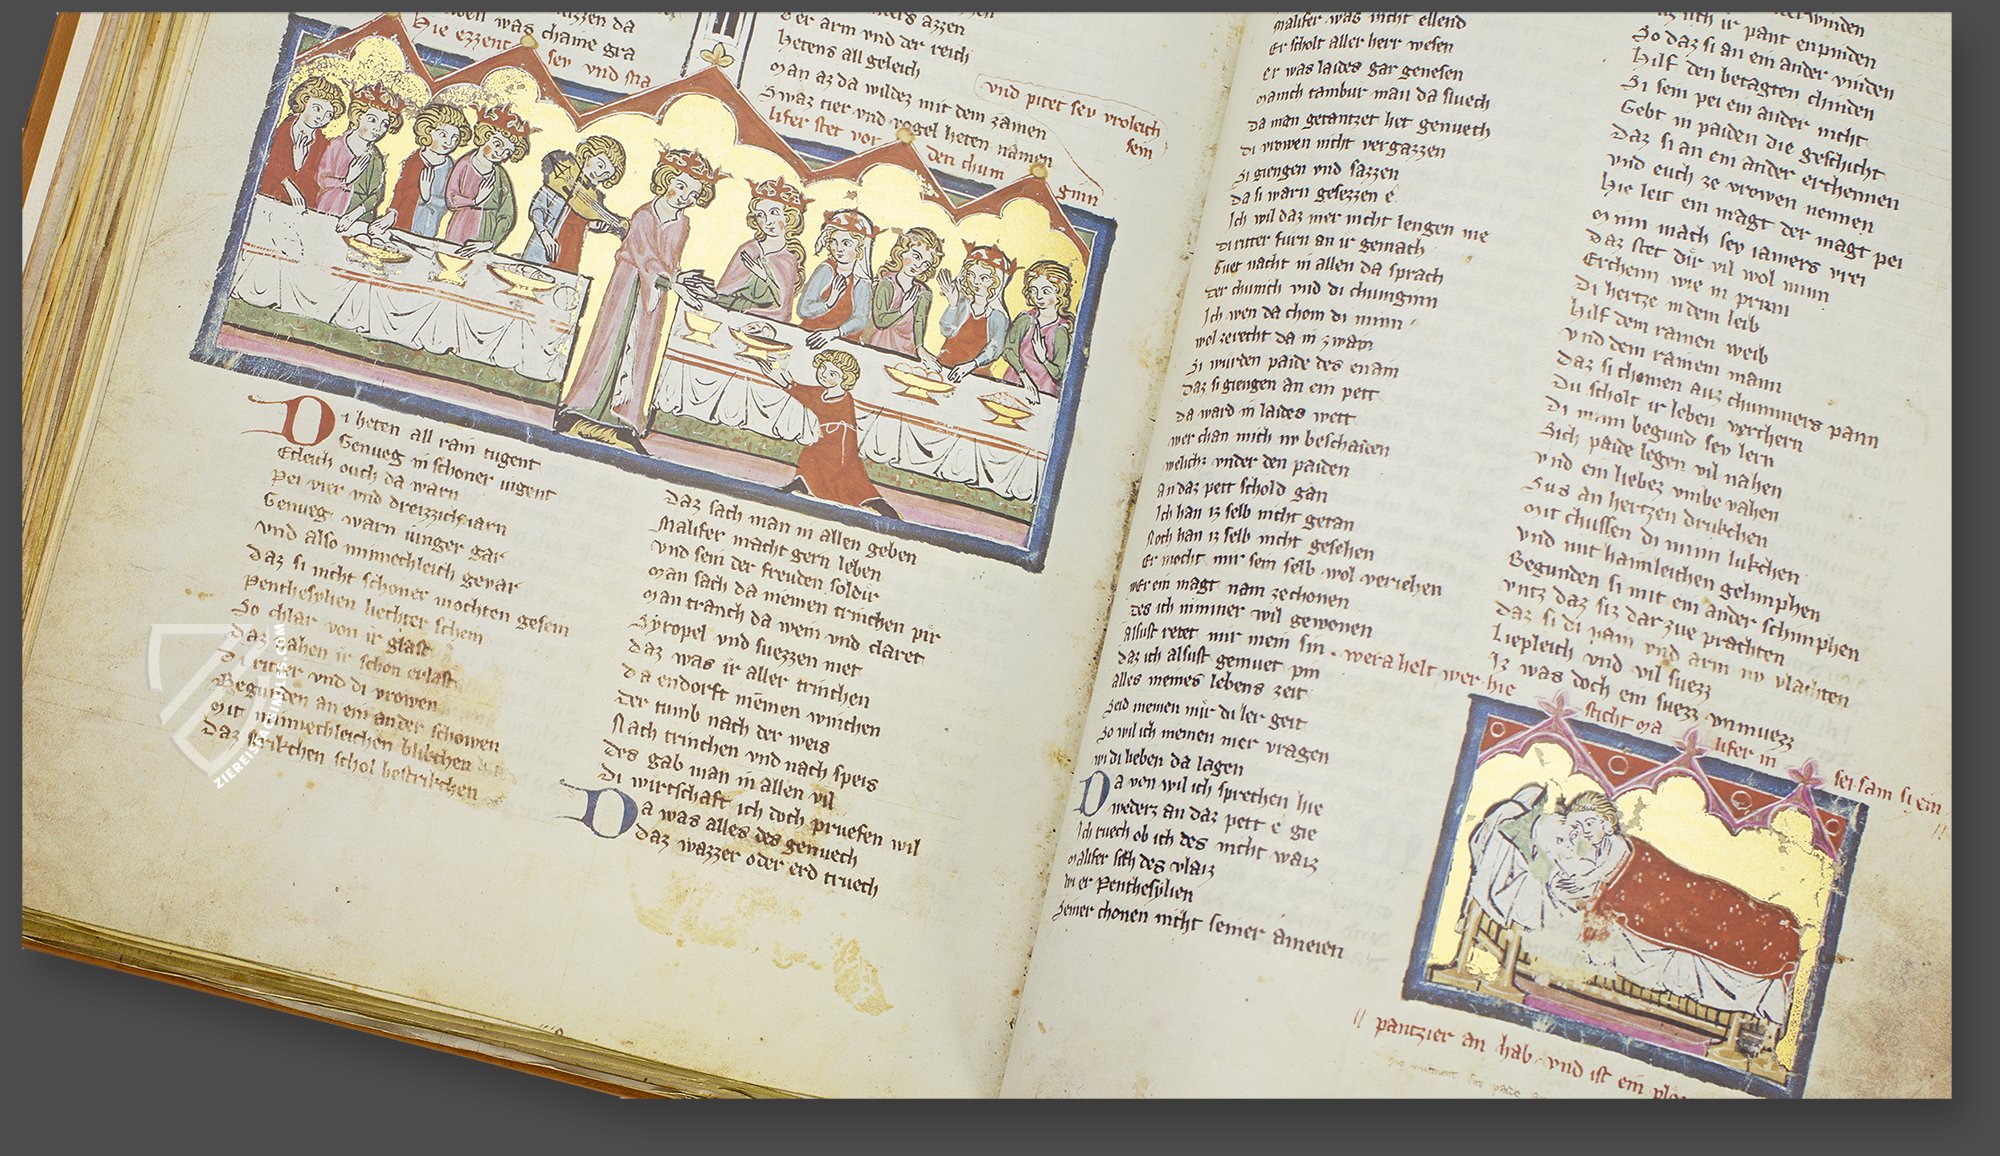 hie ezzent sey und sta
Er arm vnd der reich
hetens all geleich
man az da wildez mit dem zamen
Swaz tier vnd vogel heten namen
lifer stet vor den chum ginn
vnd pitet sey vroleich
sein
Di heten all rain tugent
Genueg in schoner iugent
Etleich ouch da warn
Pei vier vnd dreizzich iarn
Genueg warn iunger gar
vnd also minnechleich gevar
daz si nicht schoner mochten gesein
Penthesylien liechter schein
So chlar von ir glast
Di ritter vnd di vrowen
Begunden an ein ander schowen
mit minnechleichen blikchen
Daz strikchen schol bestrikchen
Daz sach man in allen geben
Malifer macht gern leben
vnd sein der freuden soldir
man sach da niemen trinchen pir
man tranch da wein vnd claret
Syropel vnd suezzen met
daz was ir aller trinchen
da endorft niemen winchen
der tumb nach der weis
Nach trinchen vnd nach speis
des gab man in allen vil
Di wirtschaft ich doch pruefen wil
Da was alles des genuech
daz wazzer oder erd truech
Malifer was nicht ellend
Er scholt aller herr wesen
er was laides gar genesen
manich tambur man da sluech
da man getantzet het genuech
di vrowen nicht vergazzen
Si giengen vnd sazzen
da si warn gesezzen e
Ich wil daz mer nicht lengen me
di ritter furn an ir gemach
Guet nacht in allen da sprach
der chunich vnd di chuniginn
Ich wen da chom di minn
wol zerecht da in zwain
Si wurden paide des enain
daz si giengen an ein pett
da ward in laides wett
wer chan mich nv beschaiden
welichz vnder den paiden
an daz pett schold gan
Ich han iz selb nicht getan
Noch han iz selb nicht gesehen
Er mocht mir sein selb wol veriehen
wer ein magt nam zechonen
des ich nimmer wil gewonen
alsust retet mir mein sin
daz ich alsust gemuet pin
alles meines lebens zeit
Seid niemen mir di ler geit
So wil ich niemen mer vragen
wi di lieben da lagen
Da von wil ich sprechen hie
wederz an daz pett e gie
Ich ruech ob ich des nicht waiz
malifer sich des vlaiz
wi er Penthesylien
Seiner chonen nicht seiner ameien
So daz si an ein ander vinden
hilf den betagten chinden
Si sein pei ein ander nicht
Gebt in paiden die geschicht
Daz si an ein ander erchennen
vnd euch ze vrowen nennen
Hie leit ein magt der magt pei
minn mach sey iamers vrei
daz stet dir vil wol minn
Erchenn wie in prinn
Di hertze in dem leib
hilf dem rainen weib
vnd dem rainem mann
daz si chomen auz chummers pann
Du scholt ir leben verchern
Di minn begund sey lern
Sich paide legen vil nahen
vnd ein liebez vmbe vahen
Sus an hertzen drukchen
mit chussen di minn lukchen
vnd mit haimleichen gelimphen
Begunden si mit ein ander schimphen
vntz daz siz dar zue prachten
daz si di pain vnd arm nv vlachten
Liepleich vnd vil suezz
Iz was doch ein suezz vnmuezz
wer a helt wer hie
sticht ma lifer in sei sam si ein
pantzier an hab vnd ist ein
ZIEREIS FACSIMILES.COM